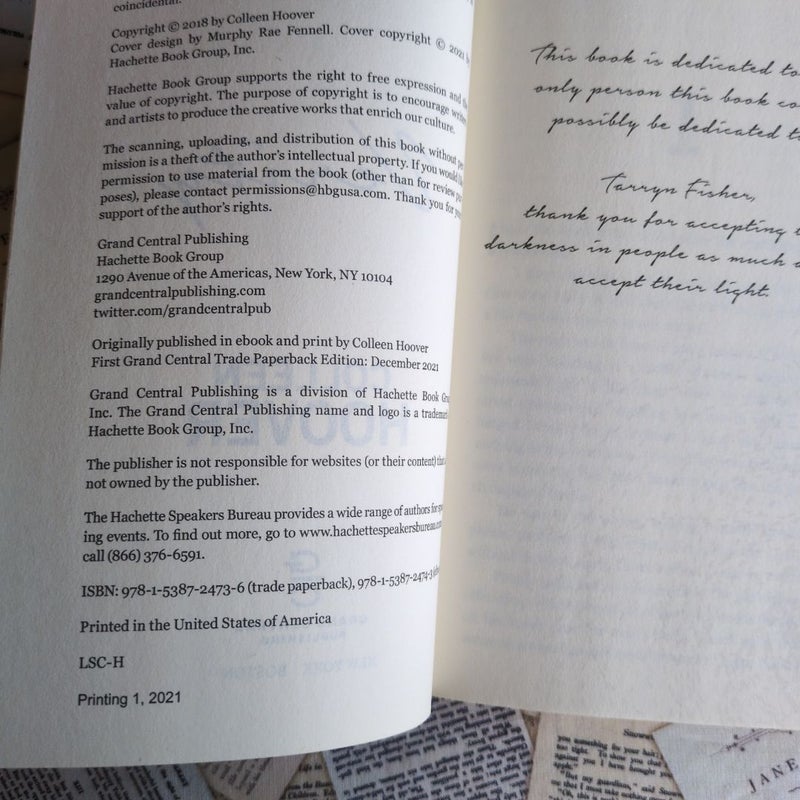 coincidental.
Copyright © 2018 by Colleen Hoover
Cover design by Murphy Rae Fennell. Cover copyright © 2021 by
Hachette Book Group, Inc.
Hachette Book Group supports the right to free expression and the
value of copyright. The purpose of copyright is to encourage writers
and artists to produce the creative works that enrich our culture.
The scanning, uploading, and distribution of this book without per
mission is a theft of the author's intellectual property. If you would
permission to use material from the book (other than for review pur
poses), please contact permissions@hbgusa.com. Thank you for
support of the author's rights.
Grand Central Publishing
Hachette Book Group
1290 Avenue of the Americas, New York, NY 10104
grandcentralpublishing.com
twitter.com/grandcentralpub
Originally published in ebook and print by Colleen Hoover
First Grand Central Trade Paperback Edition: December 2021
Grand Central Publishing is a division of Hachette Book
Inc. The Grand Central Publishing name and logo is a
Hachette Book Group, Inc.
The publisher is not responsible for websites (or their content)
not owned by the publisher.
The Hachette Speakers Bureau provides a wide range of authors for
ing events. To find out more, go to www.hachettespeakersbureau.com
call (866) 376-6591.
ISBN: 978-1-5387-2473-6 (trade paperback), 978-1-5387-2474-3
Printed in the United States of America
LSC-H
Printing 1, 2021
This book is dedicated to
only person this book co
possibly be dedicated to
Tarryn Fisher,
thank you for accepting
darkness in people as much
accept their light.
JANE